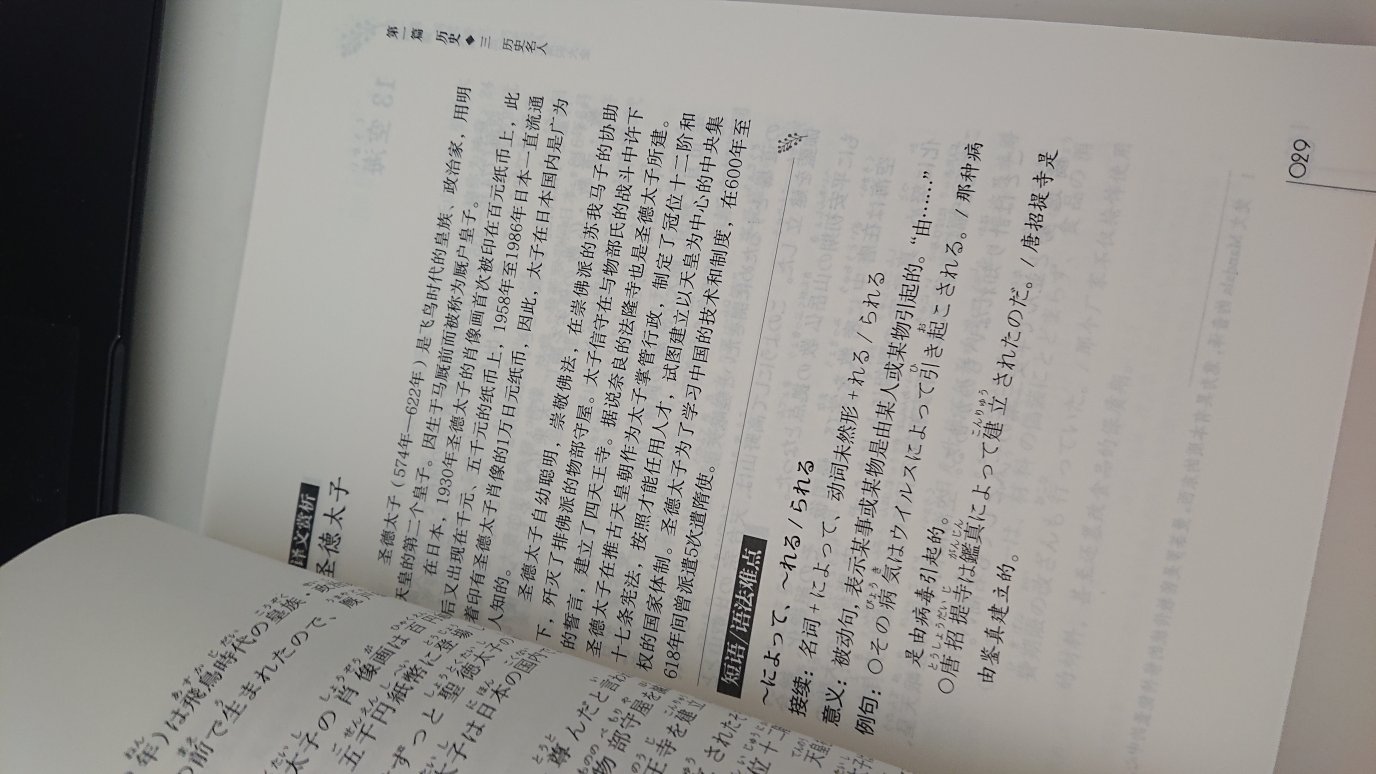 第一篇 历史◆三 历史名人
译文赏析
圣德太子
圣德太子（574年—622年）是飞鸟时代的皇族、政治家，用明
天皇的第三个皇子。因生于马厩前而被称为厩户皇子。
在日本，1930年圣德太子的肖像画首次被印在百元纸币上，此
后又出现在千元、五千元的纸币上，1958年至1986年日本一直流通
着印有圣德太子肖像的1万日元纸币，因此，太子在日本国内是广为
人知的。
圣德太子自幼聪明，崇敬佛法，在崇佛派的苏我马子的协助
下，歼灭了排佛派的物部守屋。太子信守在与物部氏的战斗中许下
的誓言，建立了四天王寺。据说奈良的法隆寺也是圣德太子所建。
圣德太子在推古天皇朝作为太子掌管行政，制定了冠位十二阶和
十七条宪法，按照才能任用人才，试图建立以天皇为中心的中央集
权的国家体制。圣德太子为了学习中国的技术和制度，在600年至
618年间曾派遣5次遣隋使。
短语/语法难点
～によって、～れる/られる
接续：名词+によって、动词未然形+れる/られる
意义：被动句，表示某事或某物是由某人或某物引起的。“由……”
例句：〇その病気はウイルスによって引き起こされる。/那种病
是由病毒引起的。
〇唐招提寺は鑑真によって建立されたのだ。/唐招提寺是
由鉴真建立的。
029
年）は飛鳥時代の皇族・
の前で生まれたので、
太子の肖像画は
五千円紙幣に登場
ずっと聖徳太子の
子は日本の国内
尊んだと言
物部守屋を
王寺を建立
されたそ
位十二
天皇